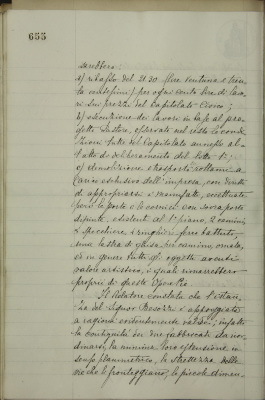 655
sarebbero:
a) ribasso del 21.30 (lire ventuna e trenta centesimi) per ogni cento lire di lavori sui prezzi del Capitolato Civico;
b) esecuzione dei lavori in base al progetto Pastore, osservate nel resto le condizioni tutte del Capitolato annesso all'atto di deliberamento del lotto 1°;
c) demolizione e trasporto rottami a carico esclusivo dell'impresa, con diritto di appropriarsi i manufatti, eccettuate però le porte e le cornici con sovraporte dipinte esistenti al 1° piano, 2 camini, 2 specchiere, 2 ringhiere ferro battuto, una lastra di ghisa pel camino, ornata, ed in genere tutti gli oggetti aventi valore artistico, i quali rimarrebbero propri di questo Ospedale.
Il Relatore constata che l'istanza del Signor Besozzi è appoggiata a ragioni evidentemente valide; infatti la contiguità dei due fabbricati da
la minima loro estensione in senso planimetrico, la strettezza delle vie che li fronteggiano, le piccole dimen-